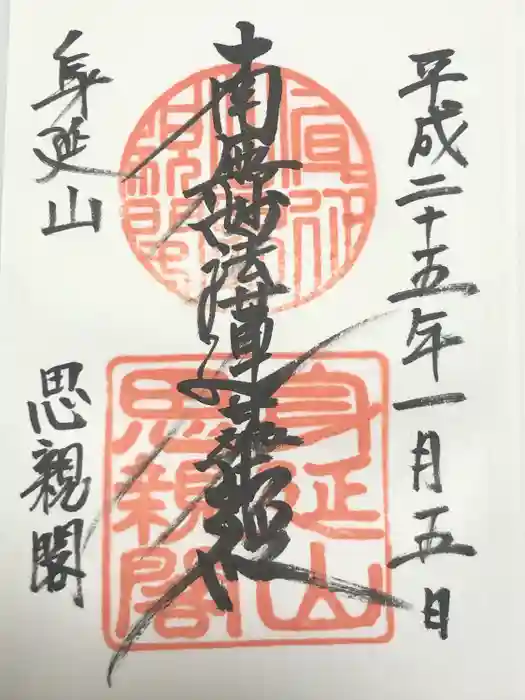 平成二十五年一月五日
南無妙法蓮華経
身延山
思親閣
身延山
思親閣